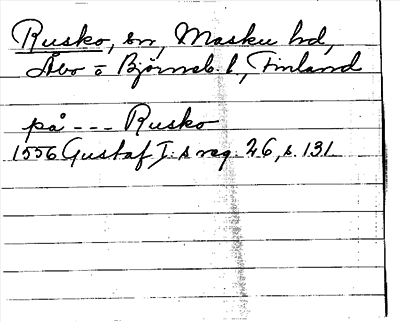 Rusko, sn, Masku hd,
Åbo o Björneb. l, Finland
på --- Rusko
1556 Gustaf I:s reg. 26, s. 131.